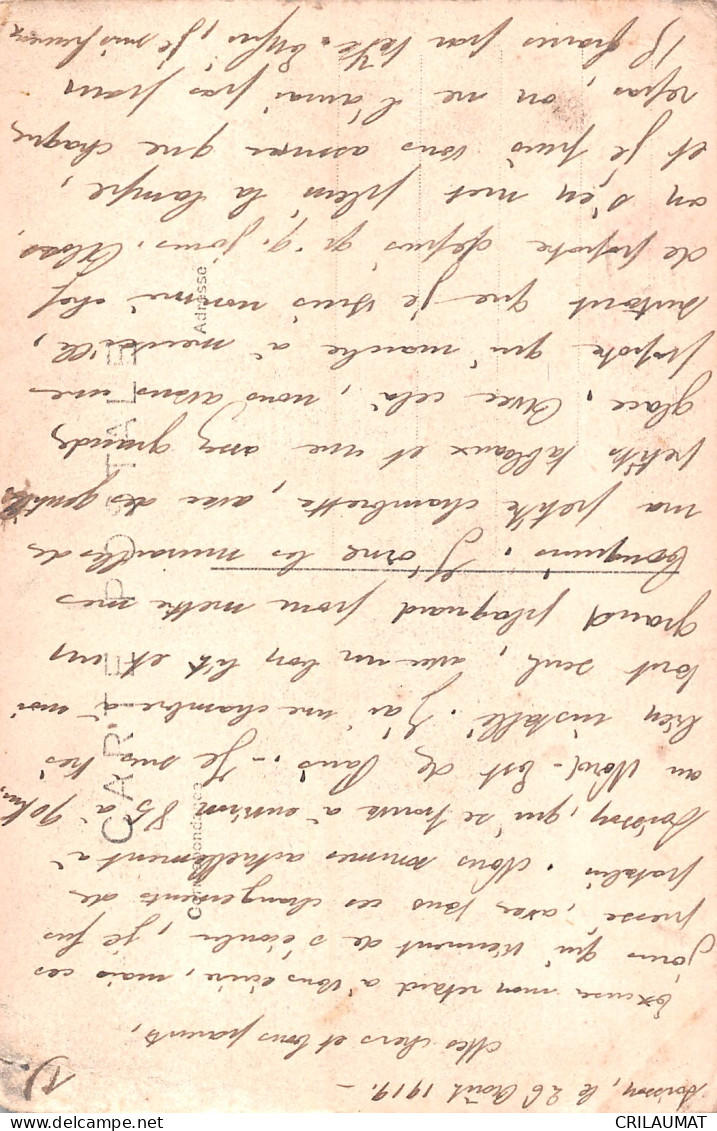 Soissons, le 26 Août 1919. -
Mes chers et bons parents,
Excusez mon retard à vous écrire, mais ces
jours qui viennent de s'écouler, je fus
pressé, avec tous ces changements de
. Nous sommes actuellement à
Soissons, qui se trouve à environ 85 à 90 km,
au Nord-Est de Paris. - Je suis très
bien installé. J'ai une chambre à moi
tout seul, avec un bon lit et un
grand plaquard pour mettre mes
. J'orne les murailles de
ma petite chambrette, avec des gentils
petits tableaux et une assez grande
glace. Avec cela, nous avons une
popote qui marche à merveille,
surtout que je suis nommé chef
de popote depuis q.q. jours. Alors,
on s'en met plein la lampe,
et je puis vous assurer que chaque
repas, on ne l'aurai pas pour
15 francs par tête. Enfin, je suis heureux
CARTE POSTALE
Correspondance
Adresse
CRILAUMAT